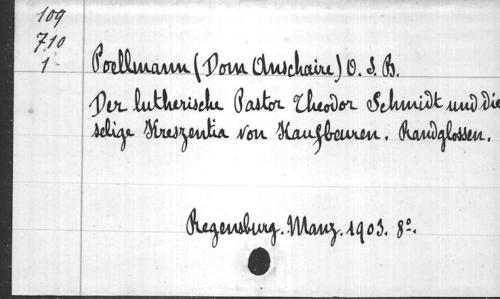 109
710
1
Poellmann (Dom Anschaire) O. S. B.
Der lutherische Pastor Theodor Schmidt und die
selige Kreszentia von Kaufbeuren. Randglossen.
Regensburg. Manz. 1903. 8º.